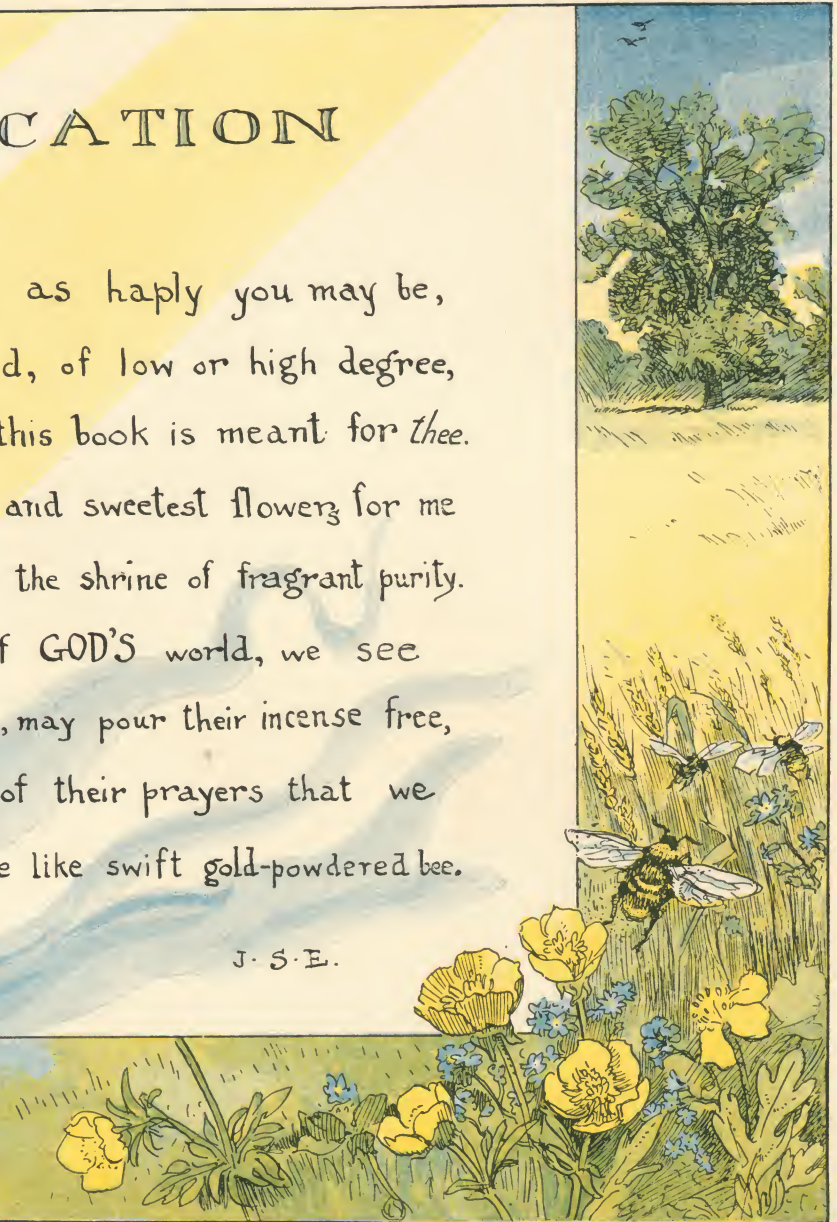 CATION
as haply you may be,
d, of low or high degree,
this book is meant for thee.
and sweetest flowers for me
the shrine of fragrant purity.
f GOD'S world, we see
, may pour their incense free,
of their prayers that we
e like swift gold-powdered bee.
J. S. E.